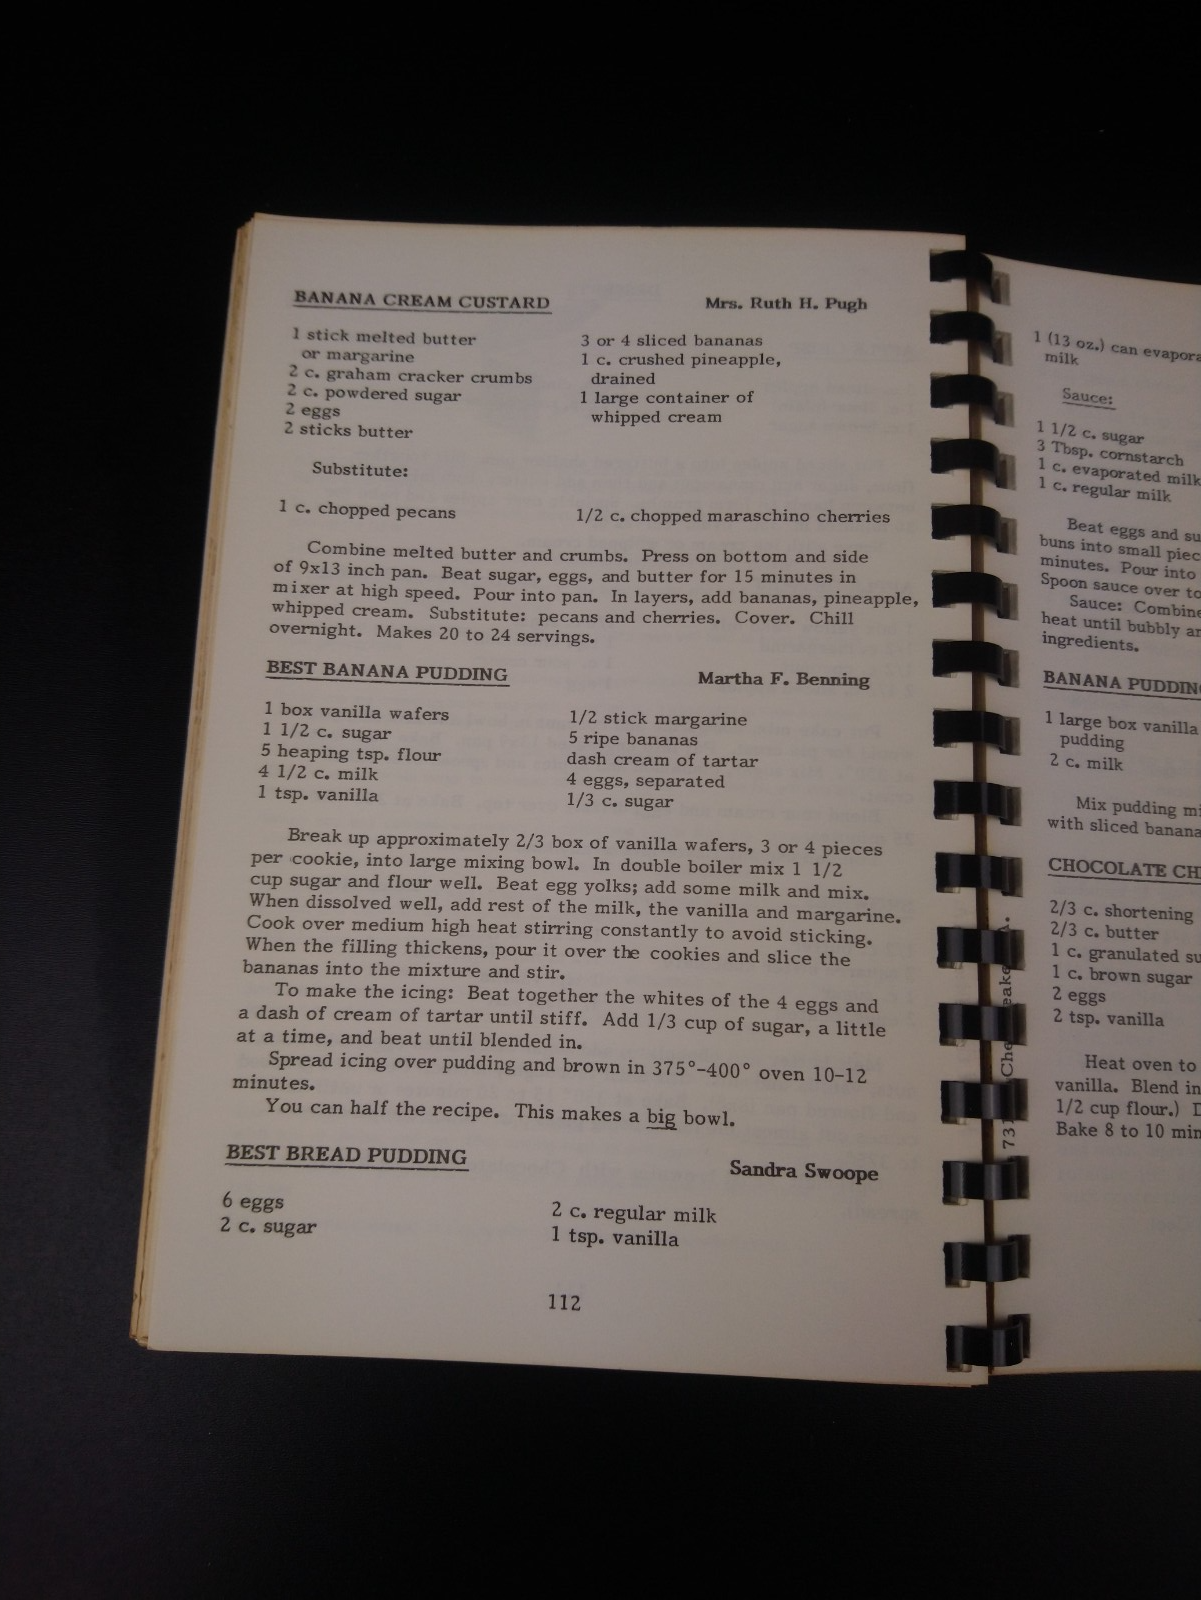 BANANA CREAM CUSTARD Mrs. Ruth H. Pugh
1 stick melted butter
or margarine
2 c. graham cracker crumbs
2 c. powdered sugar
2 eggs
2 sticks butter
3 or 4 sliced bananas
1 c. crushed pineapple,
drained
1 large container of
whipped cream
Substitute:
1 c. chopped pecans 1/2 c. chopped maraschino cherries
Combine melted butter and crumbs. Press on bottom and side
of 9x13 inch pan. Beat sugar, eggs, and butter for 15 minutes in
mixer at high speed. Pour into pan. In layers, add bananas, pineapple,
whipped cream. Substitute: pecans and cherries. Cover. Chill
overnight. Makes 20 to 24 servings.
BEST BANANA PUDDING Martha F. Benning
1 box vanilla wafers
1 1/2 c. sugar
5 heaping tsp. flour
4 1/2 c. milk
1 tsp. vanilla
1/2 stick margarine
5 ripe bananas
dash cream of tartar
4 eggs, separated
1/3 c. sugar
Break up approximately 2/3 box of vanilla wafers, 3 or 4 pieces
per cookie, into large mixing bowl. In double boiler mix 1 1/2
cup sugar and flour well. Beat egg yolks; add some milk and mix.
When dissolved well, add rest of the milk, the vanilla and margarine.
Cook over medium high heat stirring constantly to avoid sticking.
When the filling thickens, pour it over the cookies and slice the
bananas into the mixture and stir.
To make the icing: Beat together the whites of the 4 eggs and
a dash of cream of tartar until stiff. Add 1/3 cup of sugar, a little
at a time, and beat until blended in.
Spread icing over pudding and brown in 375°-400° oven 10-12
minutes.
You can half the recipe. This makes a big bowl.
BEST BREAD PUDDING Sandra Swoope
6 eggs
2 c. sugar
2 c. regular milk
1 tsp. vanilla
112
1 (13 oz.) can evapora
milk
Sauce:
1 1/2 c. sugar
3 Tbsp. cornstarch
1 c. evaporated milk
1 c. regular milk
Beat eggs and su
buns into small piec
minutes. Pour into
Spoon sauce over to
Sauce: Combine
heat until bubbly an
ingredients.
BANANA PUDDING
1 large box vanilla
pudding
2 c. milk
Mix pudding mi
with sliced banana
CHOCOLATE CH
2/3 c. shortening
2/3 c. butter
1 c. granulated su
1 c. brown sugar
2 eggs
2 tsp. vanilla
Heat oven to
vanilla. Blend in
1/2 cup flour.) D
Bake 8 to 10 min